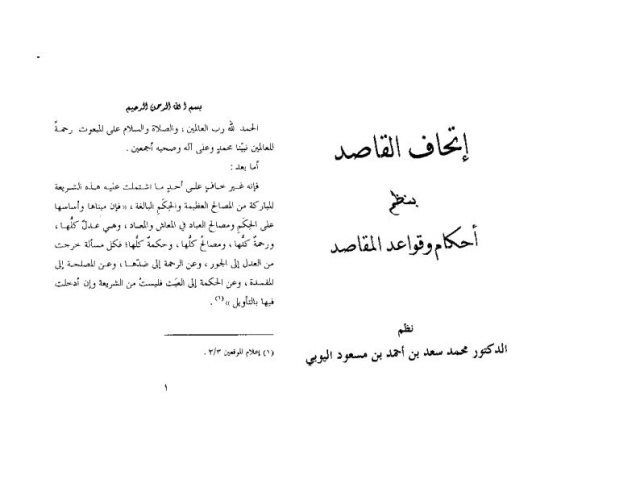 إتحاف القاصد
بنظم
أحكام وقواعد المقاصد
نظم
الدكتور محمد سعد بن أحمد بن مسعود اليوبي
بسم الله الرحمن الرحيم
الحمد لله رب العالمين، والصلاة والسلام على المبعوث رحمةً
للعالمين نبيّنا محمدٍ وعلى آله وصحبه أجمعين.
أما بعد:
فإنه غير خافٍ على أحدٍ ما اشتملت عليه هذه الشريعة
المباركة من المصالح العظيمة والحِكَمِ البالغة، «فإن مبناها وأساسها
على الحِكَمِ ومصالح العباد في المعاش والمعاد، وهي عدلٌ كلُّها،
ورحمةٌ كلُّها، ومصالحُ كلُّها، وحكمةٌ كلُّها؛ فكل مسألة خرجت
من العدل إلى الجور، وعن الرحمة إلى ضدّها، وعن المصلحة إلى
المفسدة، وعن الحكمة إلى العبَث فليستْ من الشريعة وإن أدخلت
فيها بالتأويل»(١).
(١) إعلام الموقعين ٣/٣.
١